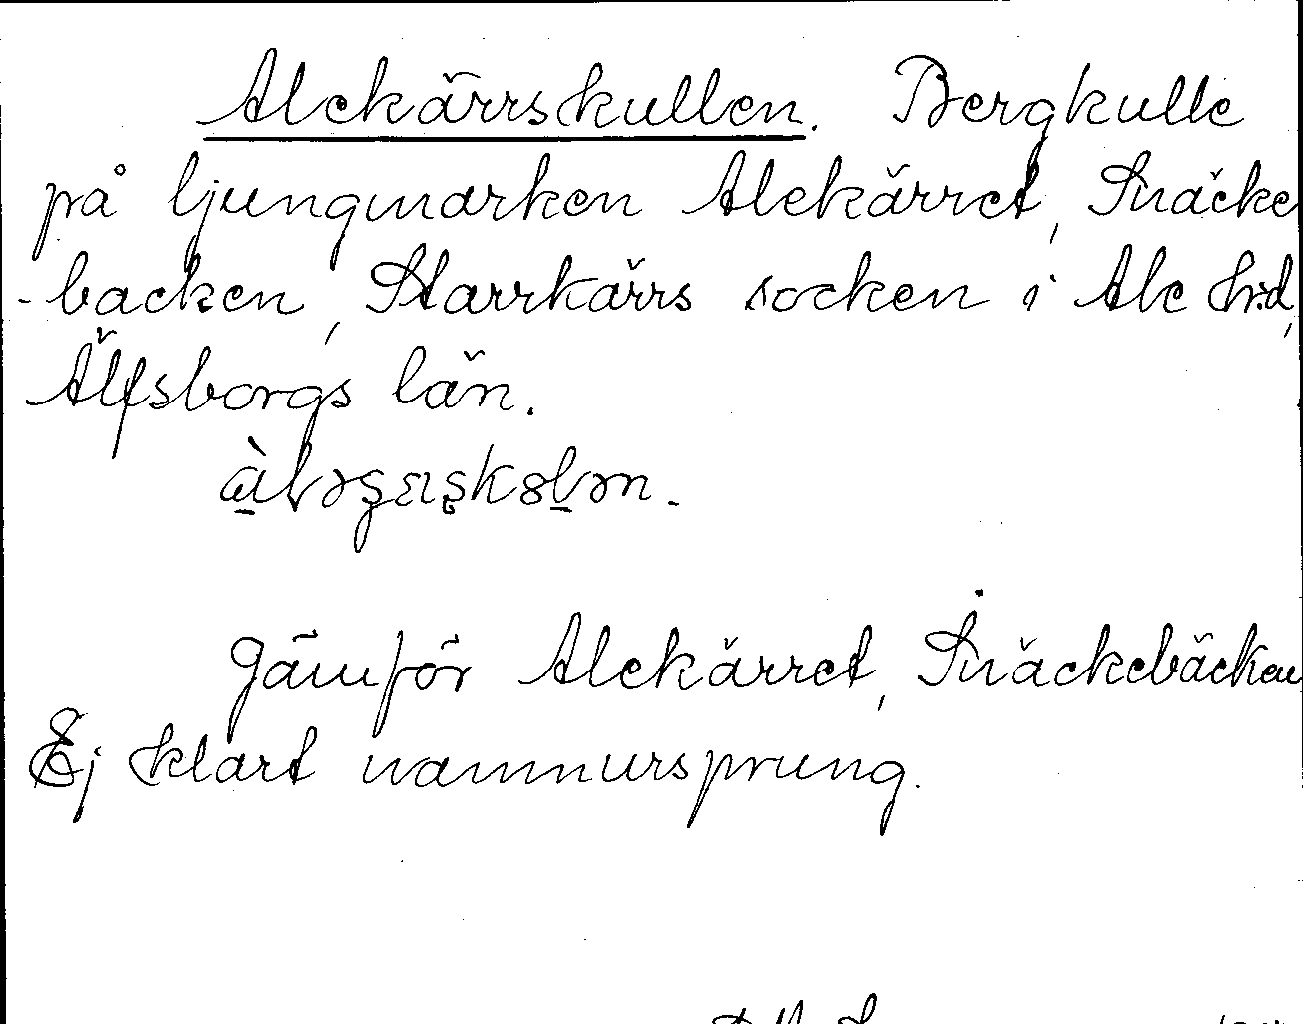 Alekärrskullen. Bergkulle
på ljungmarken Alekärret, Snäcke
-backen, Starrkärrs socken i Ale hrd,
Älfsborgs län.
Jämför Alekärret, Snäckebäcken
Ej klart namnursprung.